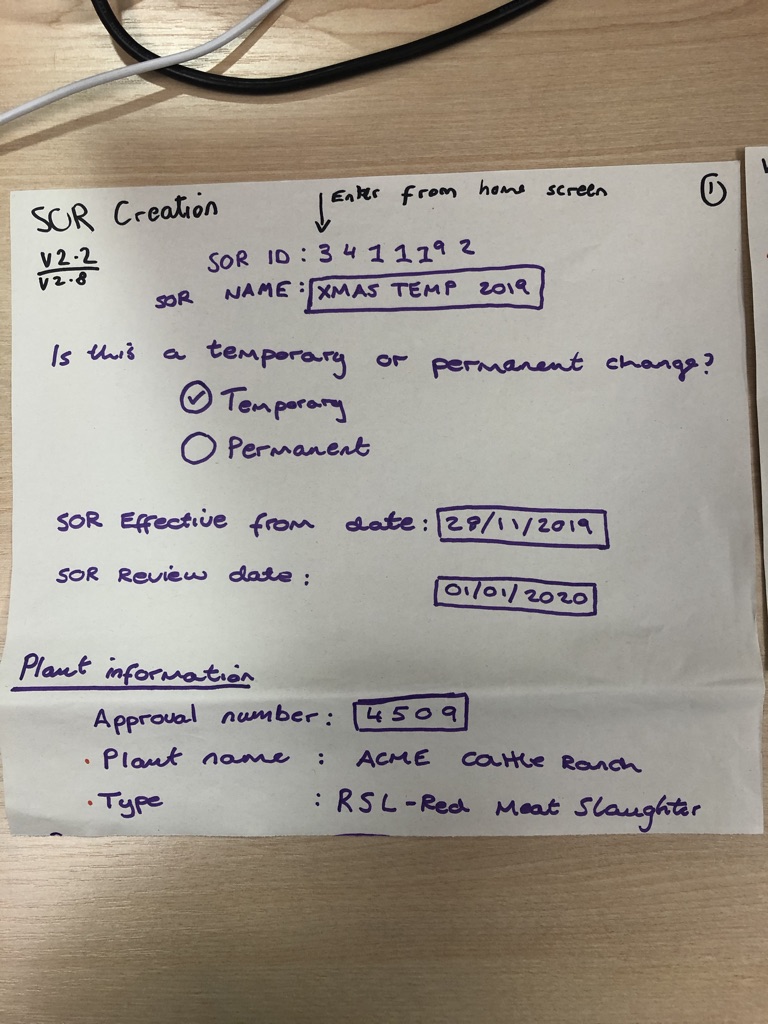 SOR Creation
↓ Enter from home screen
①
V2.2
V2.8
SOR ID: 3 4 1 1 1 9 2
SOR NAME: XMAS TEMP 2019
Is this a temporary or permanent change?
Temporary
Permanent
SOR Effective from date: 28/11/2019
SOR Review date: 01/01/2020
Plant information
Approval number: 4509
· Plant name : ACME Cattle Ranch
· Type : RSL-Red Meat Slaughter